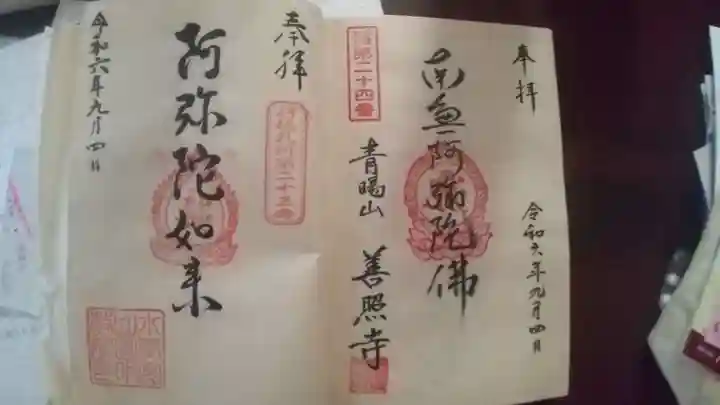 奉拝
南無阿弥陀佛
令和六年九月四日
第二十四番
青陽山 善照寺
奉拝
第二十三番
阿弥陀如来
令和六年九月四日